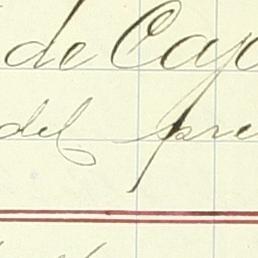 de Cajo
del pre